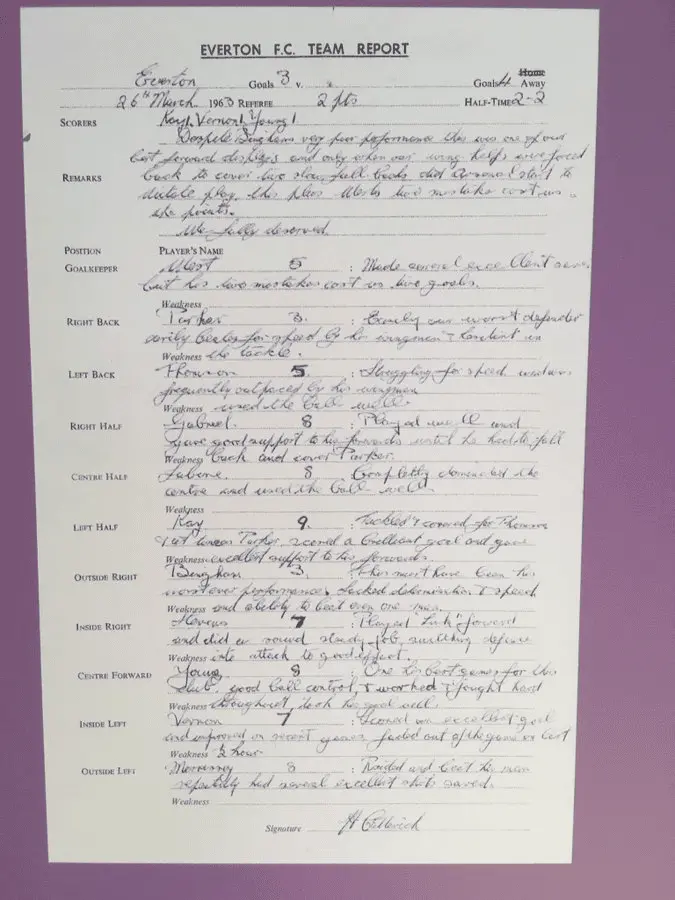 EVERTON F.C. TEAM REPORT
Everton Goals 3 v. Goals 4 Home Away
26th March 1963 REFEREE 2 pts HALF-TIME 2-2
SCORERS Kay 1, Vernon 1, Young 1
Despite Binghams very poor performance this was one of our
best forward displays and only when our wing halfs were forced
REMARKS back to cover two slow full backs did Arsenal start to
dictate play, this plus Wests two mistakes cost us
the points.
We fully deserved
POSITION PLAYER'S NAME
GOALKEEPER West 5 : Made several excellent saves
but his two mistakes cost us two goals.
Weakness
RIGHT BACK Parker 3. : Easily our worst defender
easily beaten for speed by his wingman & hesitant in
Weakness the tackle.
LEFT BACK Thomson 5. : Struggling for speed and was
frequently outpaced by his wingman
Weakness used the ball well.
RIGHT HALF Gabriel. 8 : Played well and
gave good support to his forwards until he had to fall
Weakness back and cover Parker.
CENTRE HALF Labone. 8 : Completly dominated the
centre and used the ball well
Weakness
LEFT HALF Kay 9. : Tackled & covered for Thomson
Parker, scored a brilliant goal and gave
Weakness excellent support to his forwards.
OUTSIDE RIGHT Bingham 3. : This must have been his
worst ever performance, lacked determination & speed
Weakness and ability to beat even one man.
INSIDE RIGHT Stevens 7 : Played 'Link' forward
and did a sound steady job, switching defence
Weakness into attack to good effect.
CENTRE FORWARD Young 8 : One his best games for this
club, good ball control, & worked & fought hard
Weakness throughout, took his goal well.
INSIDE LEFT Vernon 7 : Scored an excellent goal
and improved on recent games faded out of the game in last
Weakness ½ hour
OUTSIDE LEFT Morrissey 8 : Raided and beat his man
repeatedly had several excellent shots saved.
Weakness
Signature H Catterick